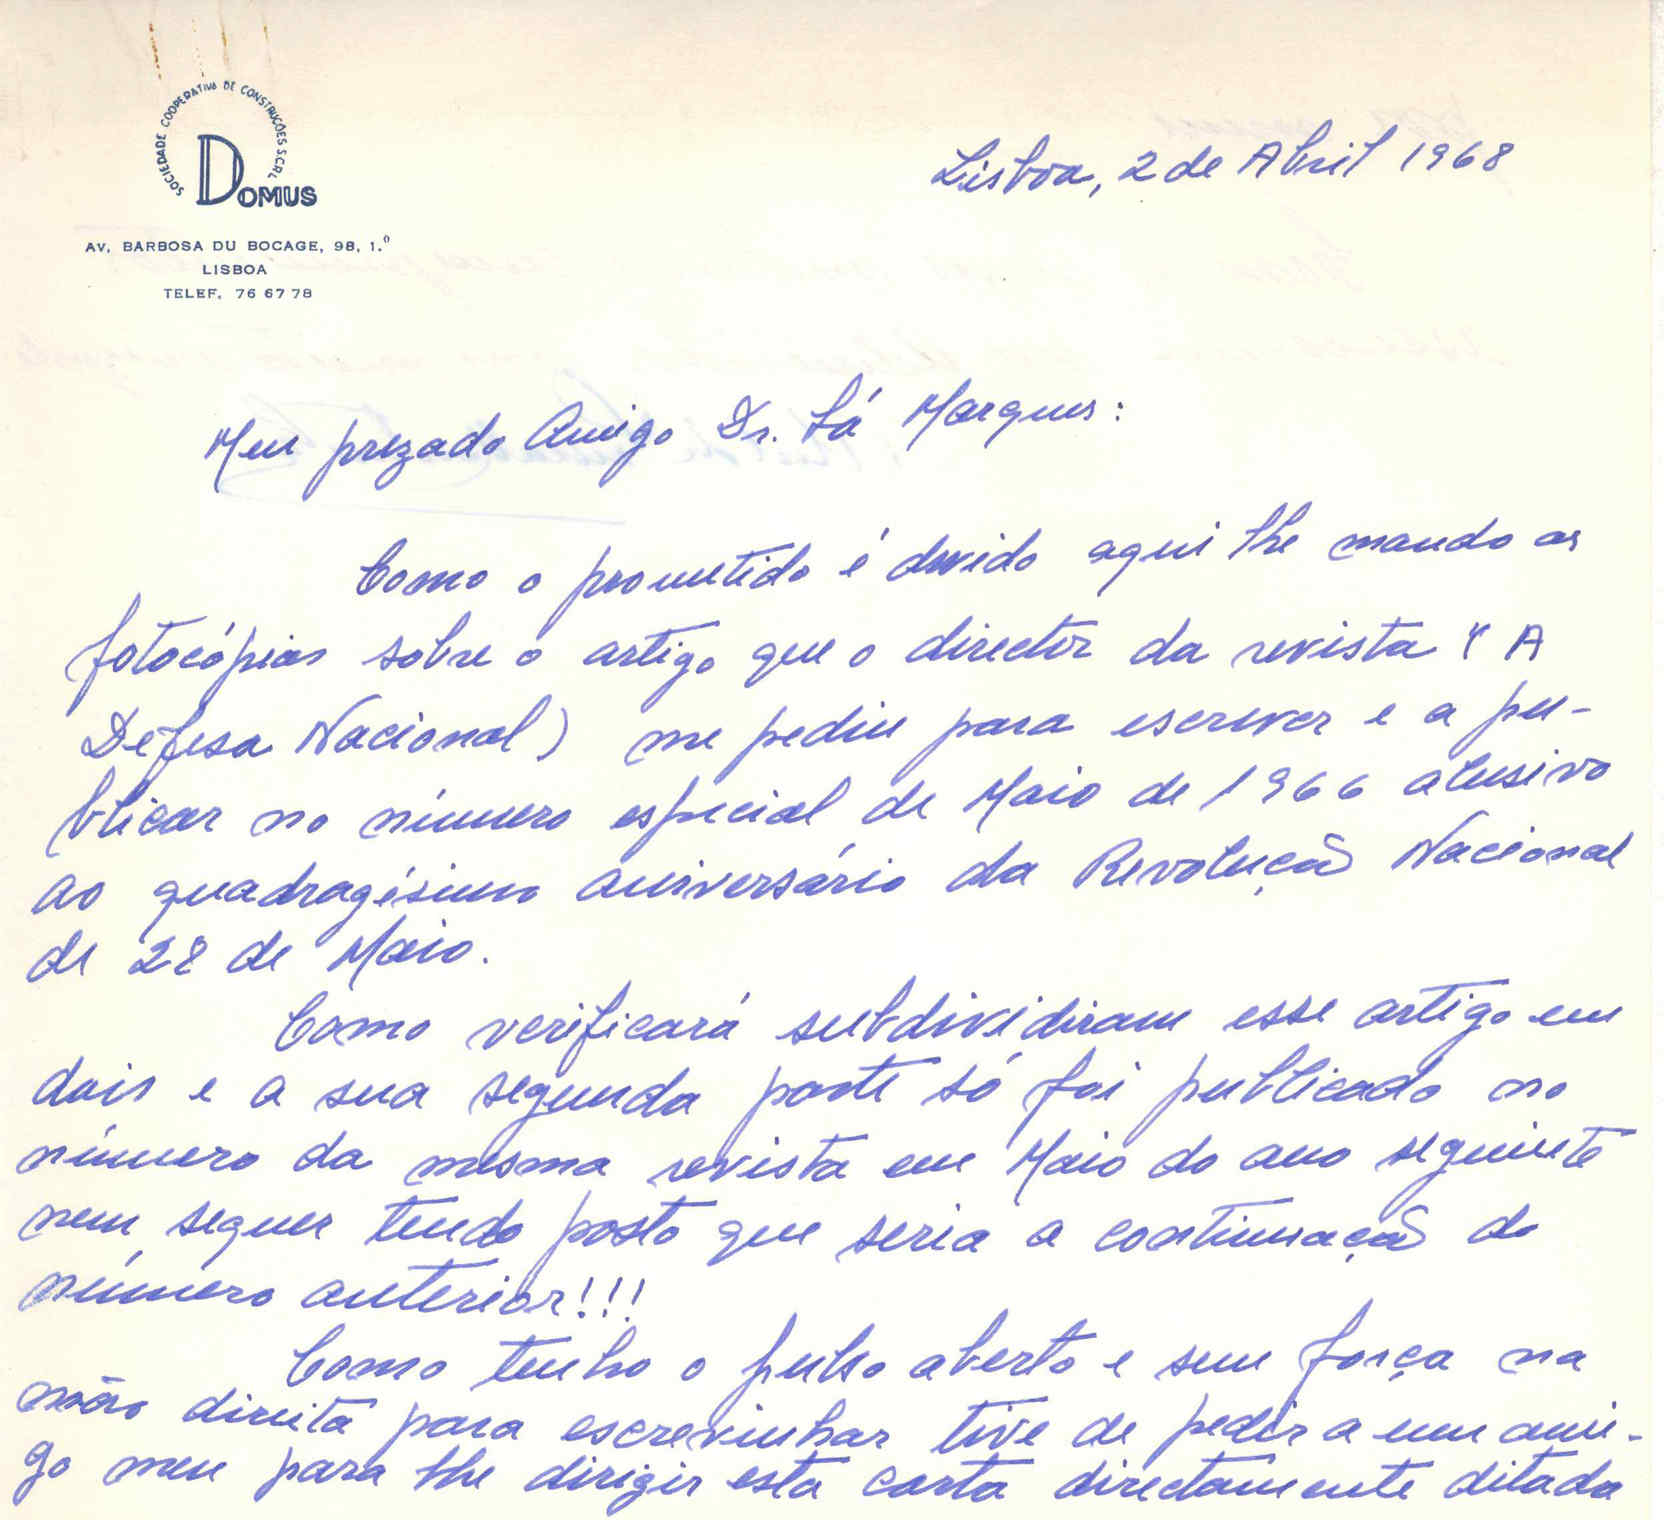 SOCIEDADE COOPERATIVA DE CONSTRUÇÕES S.C.R.L.
DOMUS
AV. BARBOSA DU BOCAGE, 98, 1.º
LISBOA
TELEF. 76 67 78
Lisboa, 2 de Abril 1968
Meu prezado Amigo Dr. Sá Marques:
Como o prometido é devido aqui lhe mando as
fotocópias sobre o artigo que o director da revista (A
Defesa Nacional) me pediu para escrever e a pu-
blicar no número especial de Maio de 1966 alusivo
ao quadragésimo aniversário da Revolução Nacional
de 28 de Maio.
Como verificará subdividiram esse artigo em
dois e a sua segunda parte só foi publicado no
número da mesma revista em Maio do ano seguinte
nem sequer tendo posto que seria a continuação do
número anterior!!!
Como tenho o pulso aberto e sem força na
mão direita para escrevinhar tive de pedir a um ami-
go meu para lhe dirigir esta carta directamente ditada